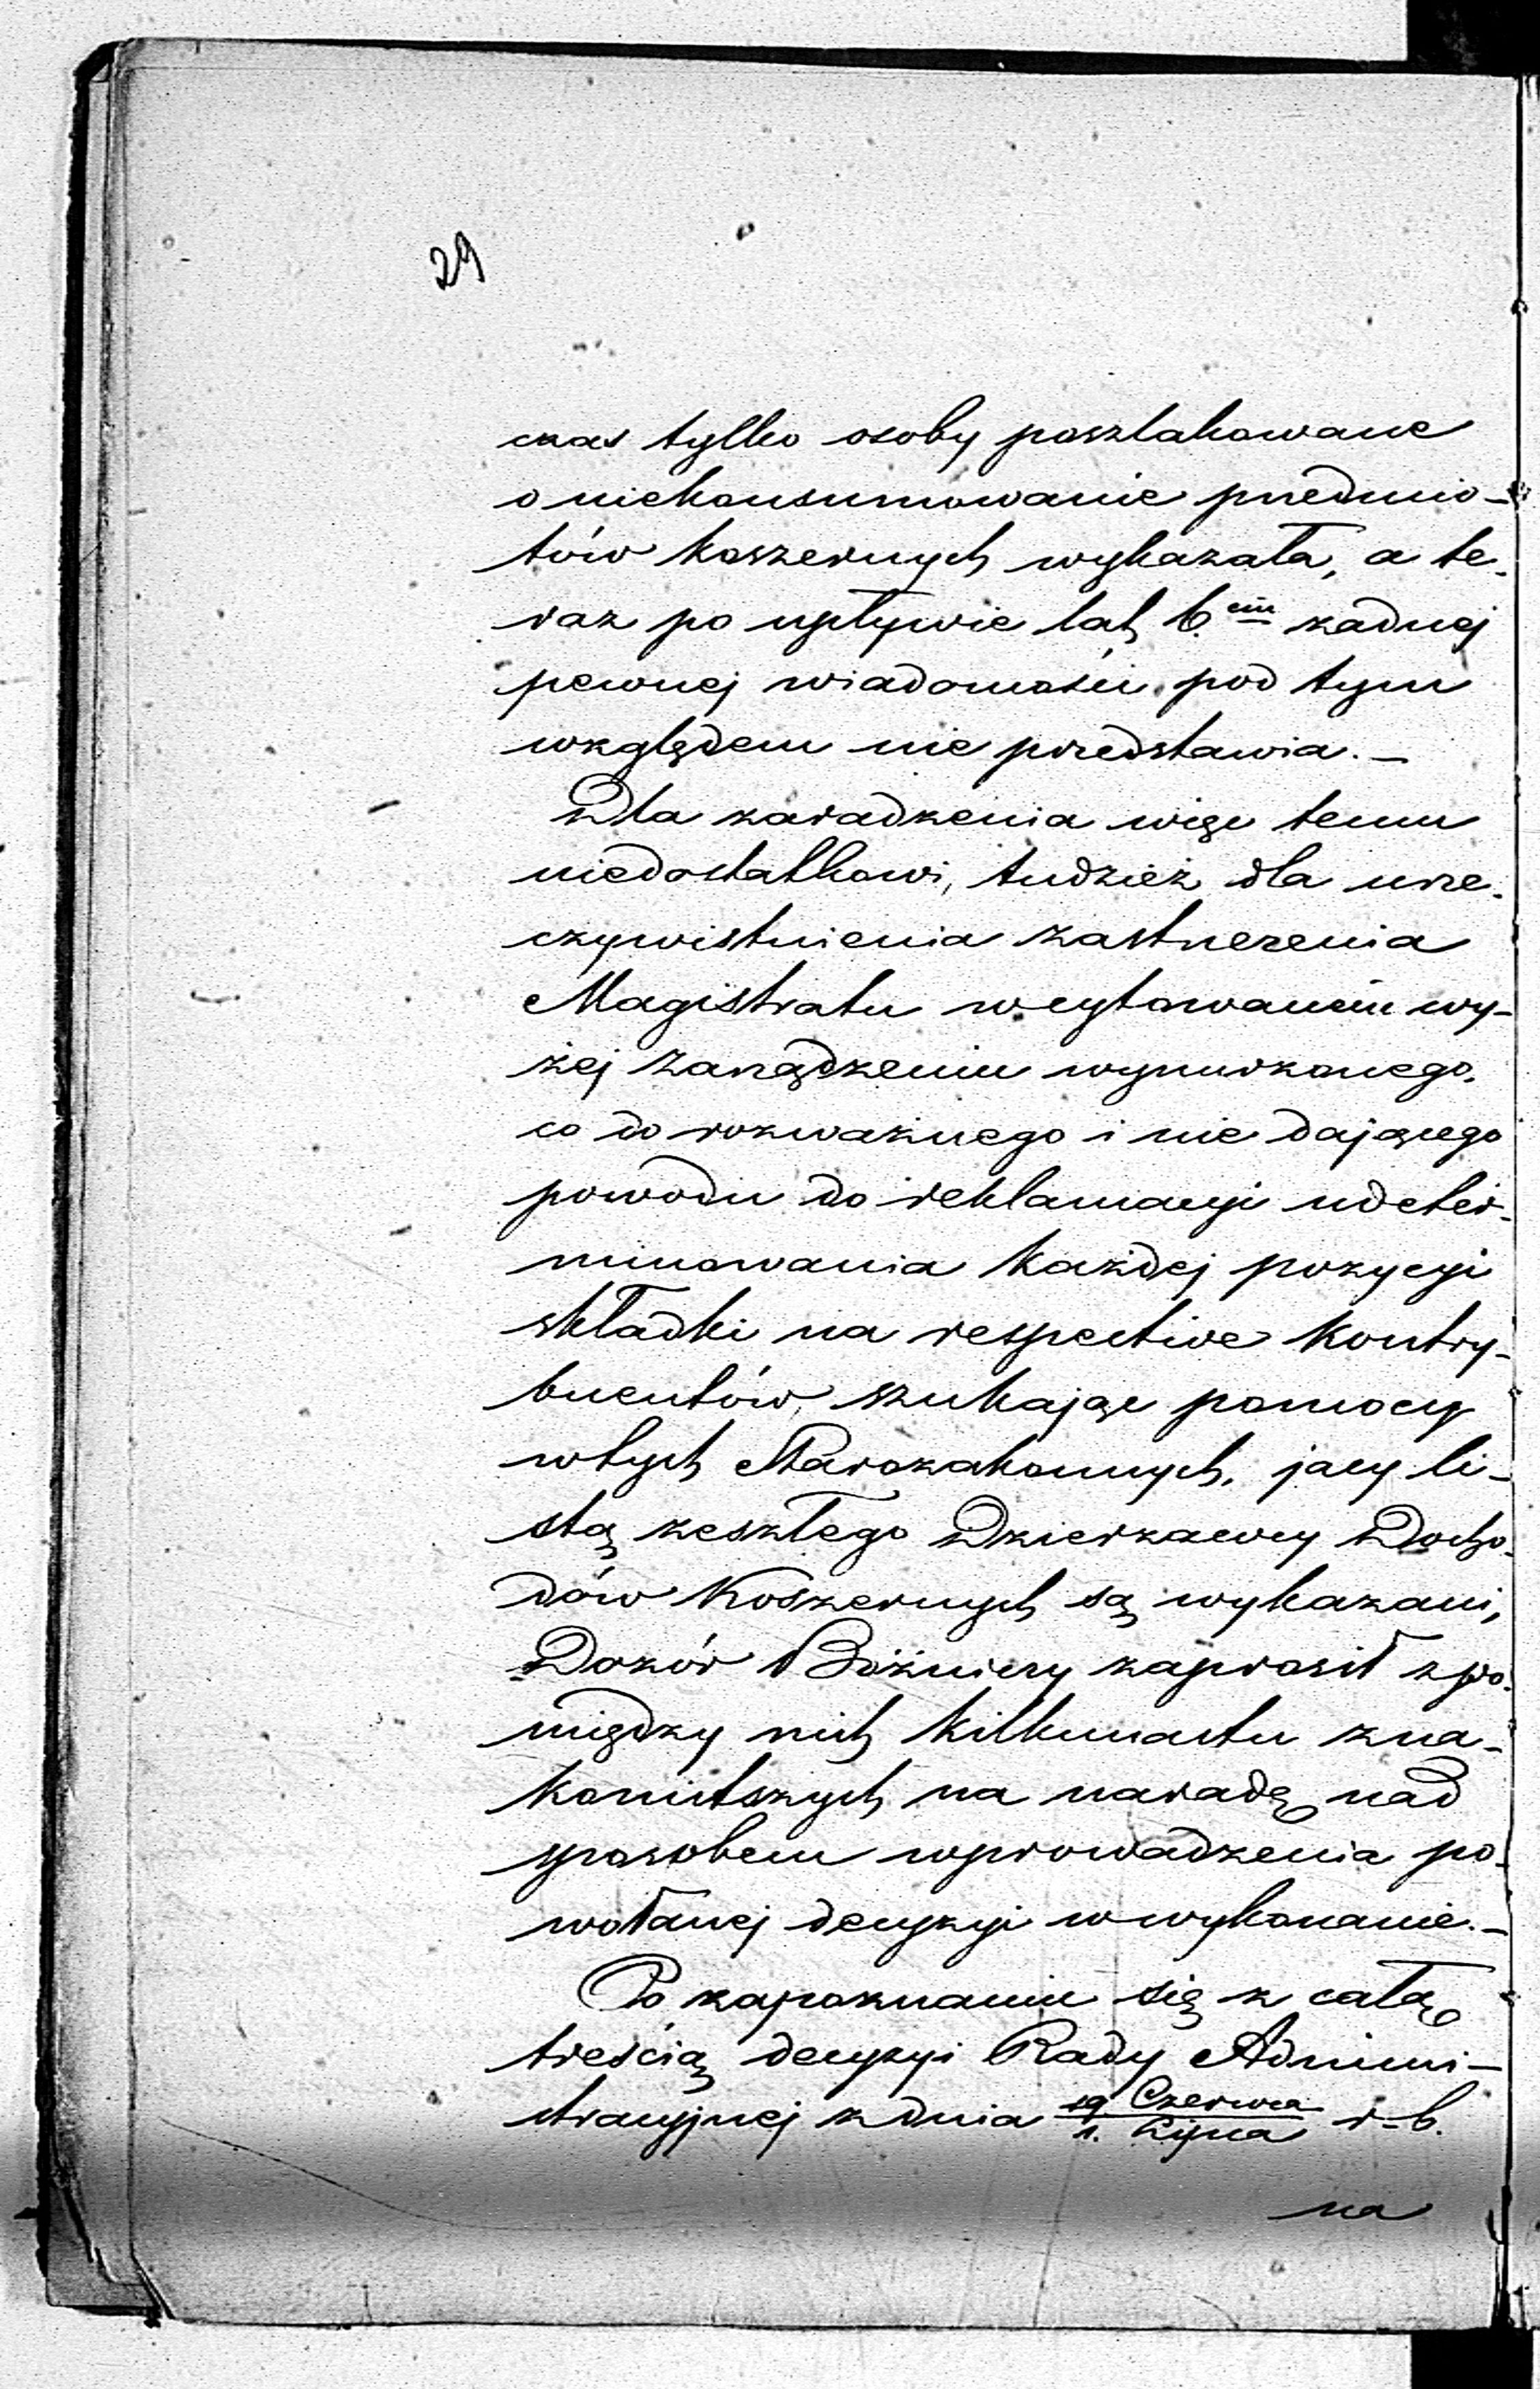 29
czas tylko osoby poszlakowane
o niekonsumowanie przedmio-
tów koszernych wykazała, a te-
raz po upływie lat 6.ciu żadnej
pewnej wiadomości pod tym
względem nie przedstawia. -
Dla zaradzenia więc temu
niedostatkowi, tudzież dla urze-
czywistnienia zastrzeżenia
Magistratu w cytowaném wy-
żej zarządzeniu wynurzonego,
co do rozważnego i nie dającego
powodu do reklamacyi udeter-
minowania każdej pozycyi
składki na respective kontry-
buentów, szukając pomocy
w tych Starozakonnych, jacy li-
stą zeszłego Dzierżawcy Docho-
dów Koszernych są wykazani,
Dozór Bóżniczy zaprosił z po-
między nich kilkunastu zna-
komitszych na naradę nad
sposobem wprowadzenia po-
wołanej decyzyi w wykonanie. -
Po zapoznaniu się z całą
treścią decyzyi Rady Admini-
stracyjnej z dnia 19 Czerwca / 1. Lipca r. b.
na